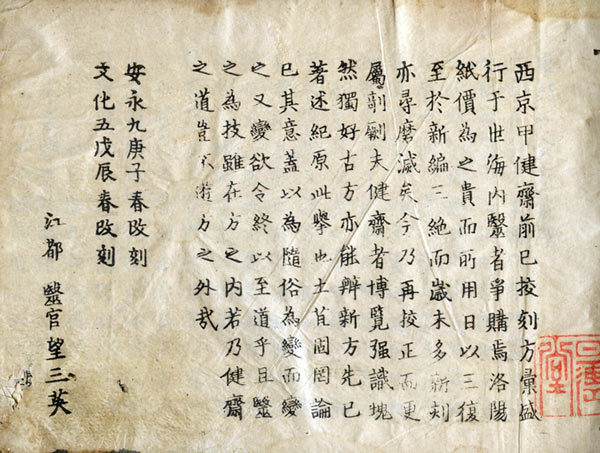 西京甲健齋前已挍刻方彙盛
行于世海内毉者爭購焉洛陽
紙價為之貴而所用日以三復
至於新編三絶而歳未多新刻
亦尋磨滅矣今乃再挍正而更
屬剞劂夫健齋者博覽强識塊
然獨好古方亦能辯新方先已
著述紀原此舉也土苴罔論
已其意蓋以為隨俗為變而變
之又變欲令終以至道乎且毉
之為技雖在方之内若乃健齋
之道豈不遊方之外哉
安永九庚子春改刻
文化五戊辰春改刻
江都 毉官望三英